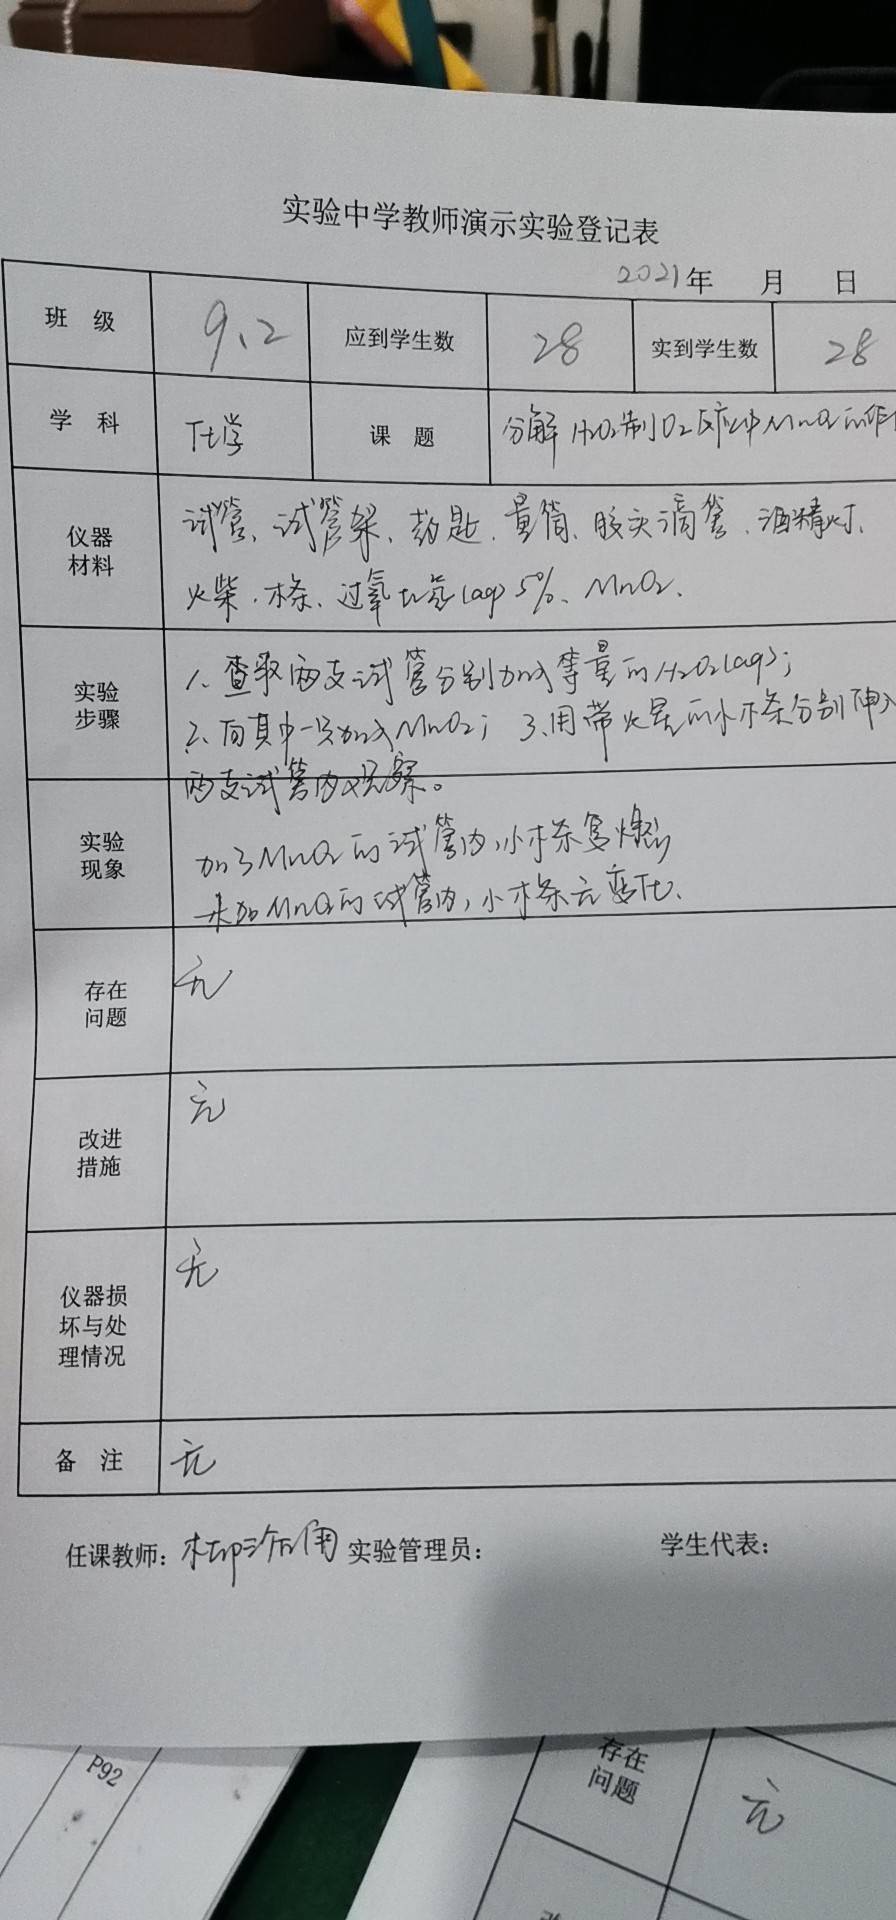 实验中学教师演示实验登记表
2021年 月 日
班 级 9.2 应到学生数 28 实到学生数 28
学 科 化学 课 题 分解H2O2制O2反应中MnO2的作
仪器材料 试管、试管架、药匙、量筒、胶头滴管、酒精灯、
火柴、木条、过氧化氢(aq)5%、MnO2、
实验步骤 1、取两支试管分别加入等量的H2O2(aq);
2、向其中一只加入MnO2; 3、用带火星的小木条分别伸入
两支试管内观察。
实验现象 加了MnO2的试管内,小木条复燃
未加MnO2的试管内,小木条无变化、
存在问题 无
改进措施 无
仪器损坏与处理情况 无
备 注 无
任课教师: 实验管理员: 学生代表:
P92
存在问题 无